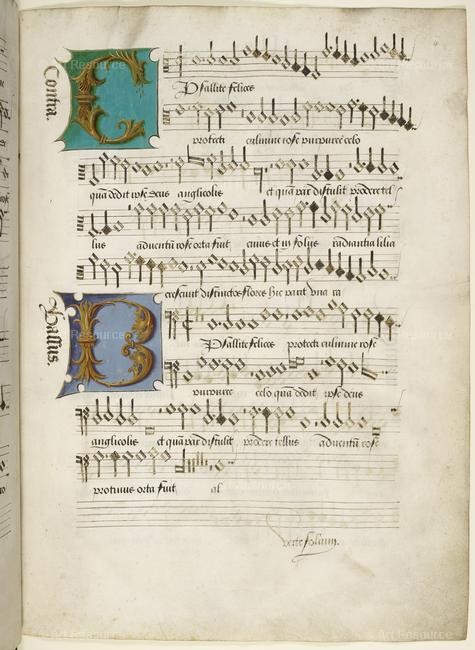 Contra.
Psallite felices
protecti culmine rose purpuree celo
quā dedit ipse deus anglicolis et quā par distulit prodere tel
lus adventū rose orta fuit cuius et in folijs radiantia lilia
crescunt distinctos flores hic parit una ra
Bassus.
Psallite felices protecti culmine rose
purpuree celo quā dedit ipse deus
anglicolis et quā par distulit prodere tellus adventū rose
protinus orta fuit al
verte folium.
Art Resource